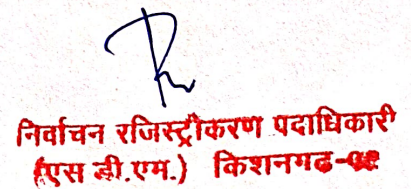 निर्वाचन रजिस्ट्रीकरण पदाधिकारी
(एस डी.एम.) किशनगढ-